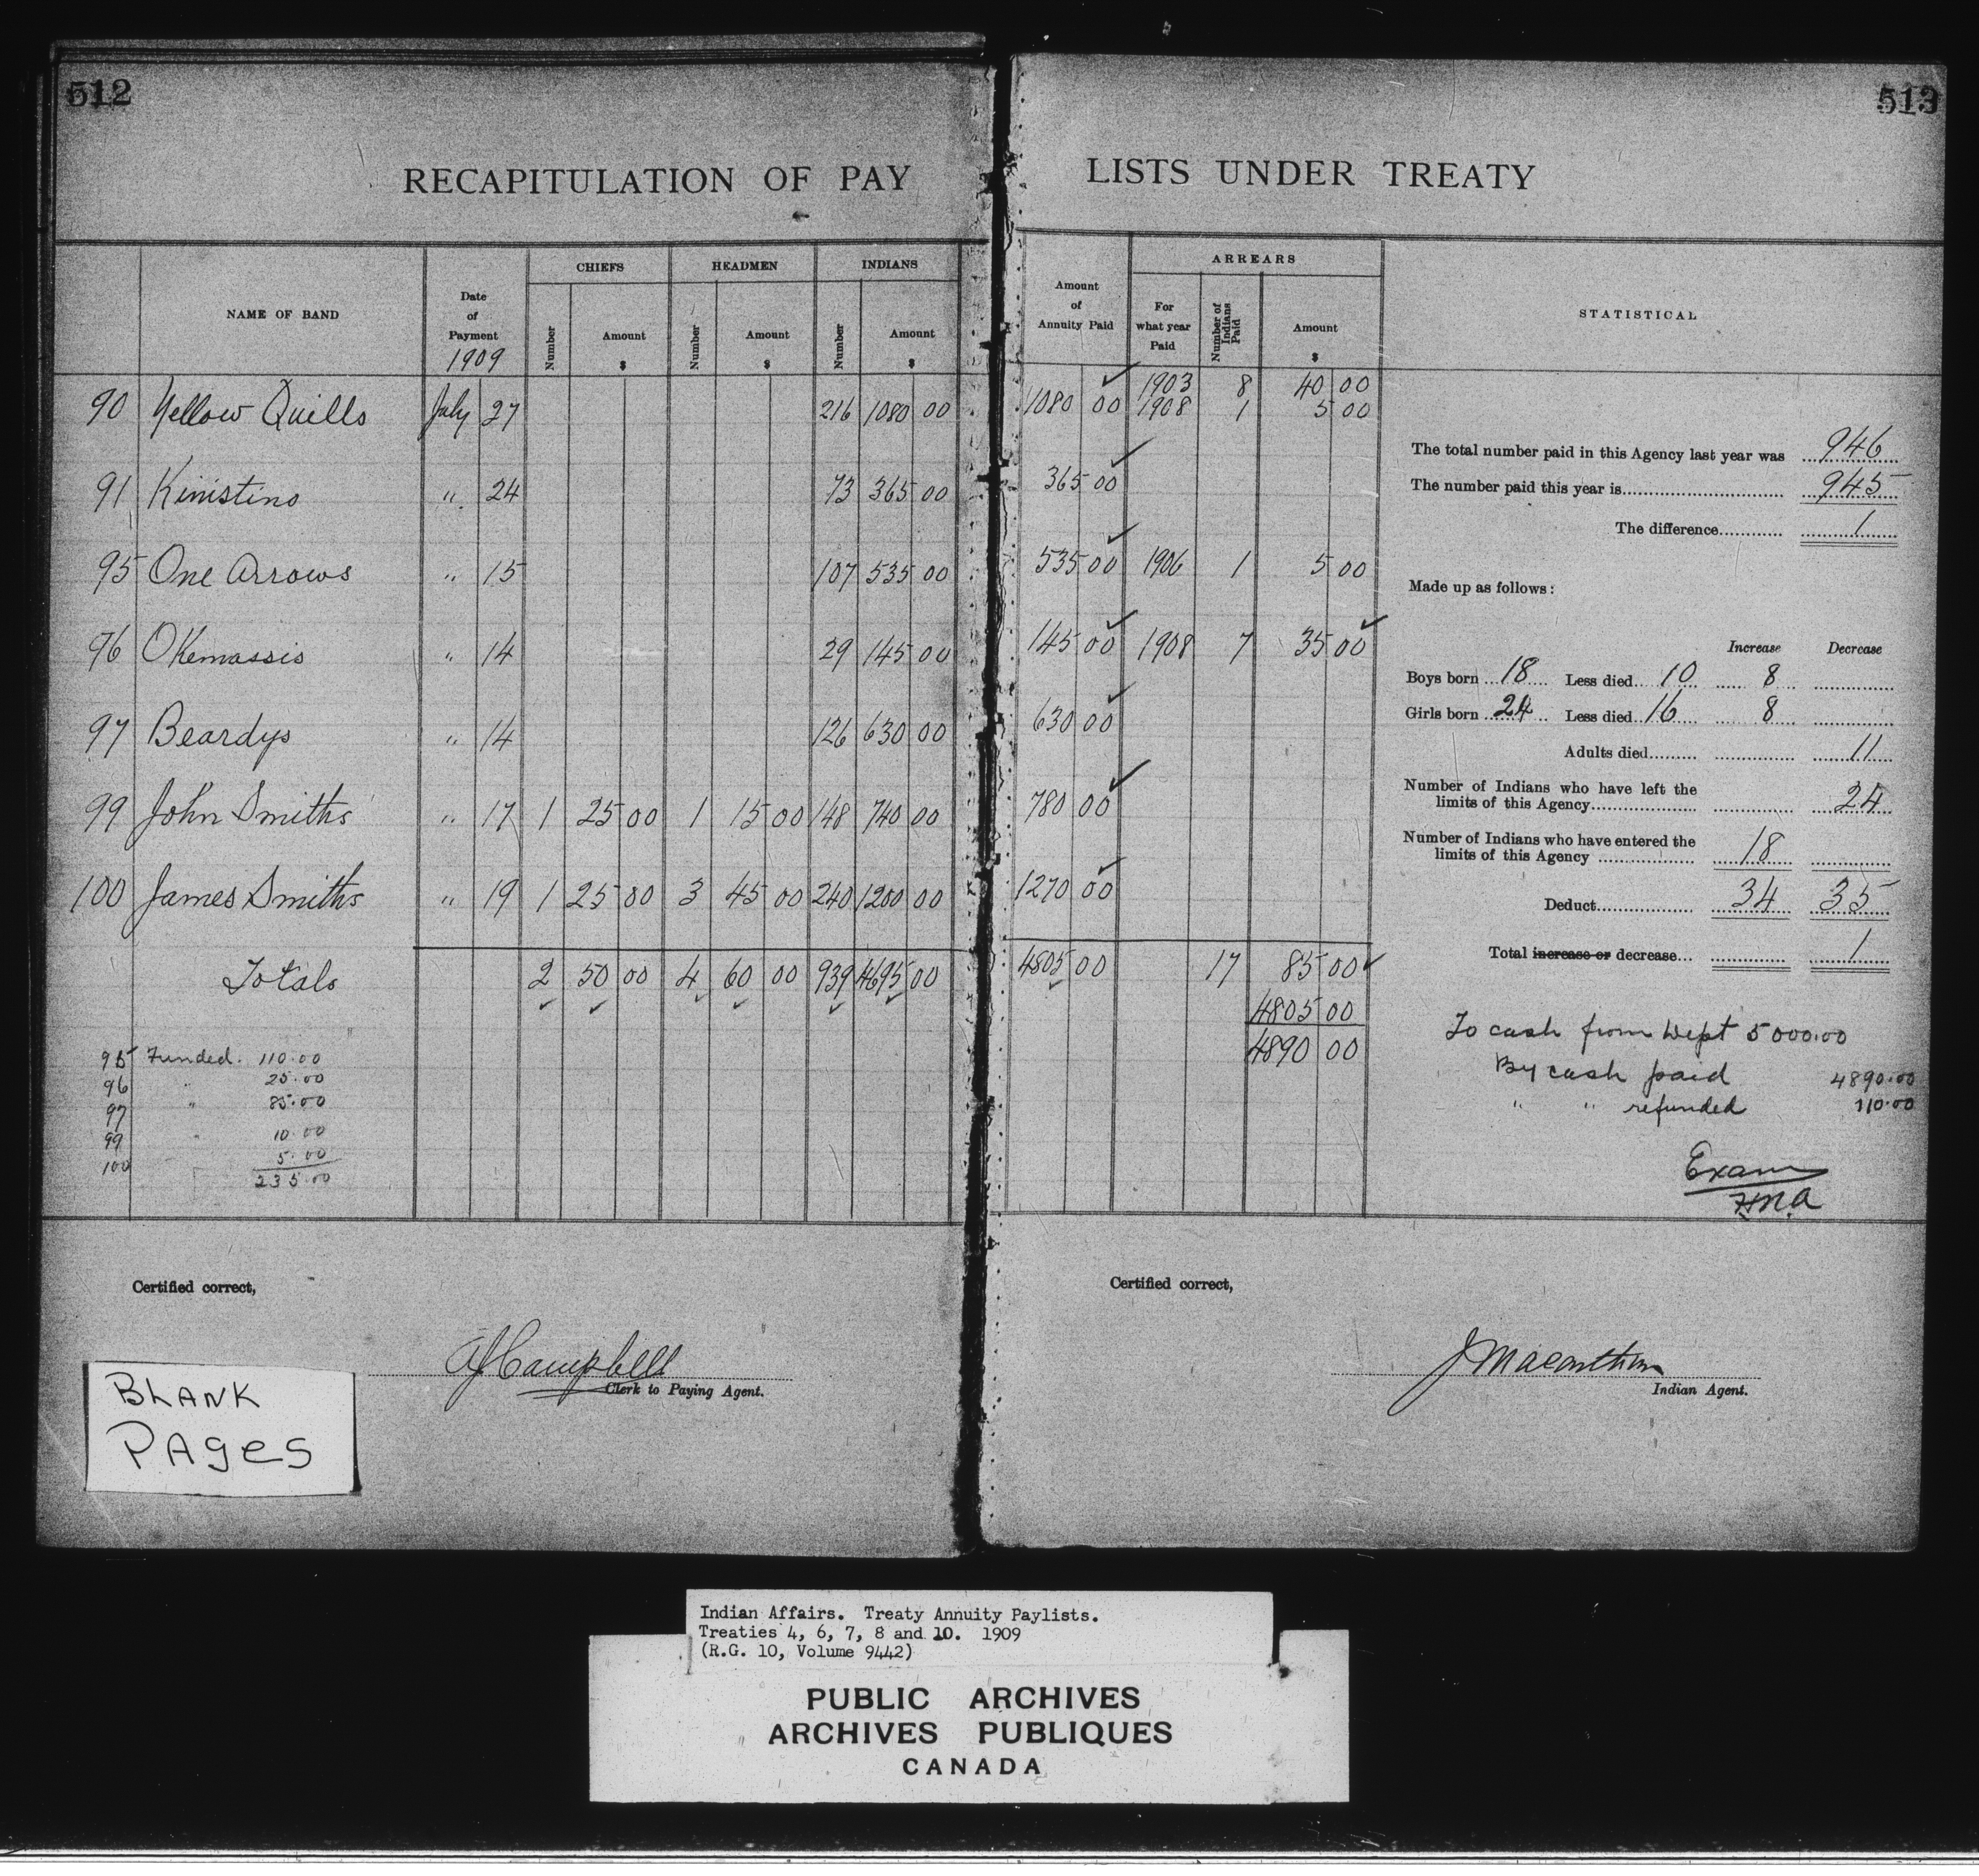 512
513
RECAPITULATION OF PAY LISTS UNDER TREATY
NAME OF BAND
Date of Payment 1909
CHIEFS Number Amount $
HEADMEN Number Amount $
INDIANS Number Amount $
Amount of Annuity Paid
ARREARS
For what year Paid
Number of Indians Paid
Amount $
STATISTICAL
90 Yellow Quills July 27 216 1080 00 1080 00 1903 8 40 00
1908 1 5 00
91 Kinistino " 24 73 365 00 365 00
95 One Arrows " 15 107 535 00 535 00 1906 1 5 00
96 Okemassis " 14 29 145 00 145 00 1908 7 35 00
97 Beardys " 14 126 630 00 630 00
99 John Smiths " 17 1 25 00 1 15 00 148 740 00 780 00
100 James Smiths " 19 1 25 00 3 45 00 240 1200 00 1270 00
Totals 2 50 00 4 60 00 939 4695 00 4805 00 17 85 00
4805 00
4890 00
95 Funded. 110.00
96 " 25.00
97 " 85.00
99 " 10.00
100 5.00
235.00
The total number paid in this Agency last year was 946
The number paid this year is 945
The difference 1
Made up as follows:
Increase Decrease
Boys born 18 Less died 10 8
Girls born 24 Less died 16 8
Adults died 11
Number of Indians who have left the
limits of this Agency 24
Number of Indians who have entered the
limits of this Agency 18
Deduct 34 35
Total increase or decrease 1
To cash from Dept 5000.00
By cash paid 4890.00
" " refunded 110.00
Exam
H.N.A
Certified correct,
AJ Campbell
Clerk to Paying Agent.
Certified correct,
J Macarthur
Indian Agent.
BLANK
PAges
Indian Affairs. Treaty Annuity Paylists.
Treaties 4, 6, 7, 8 and 10. 1909
(R.G. 10, Volume 9442)
PUBLIC ARCHIVES
ARCHIVES PUBLIQUES
CANADA